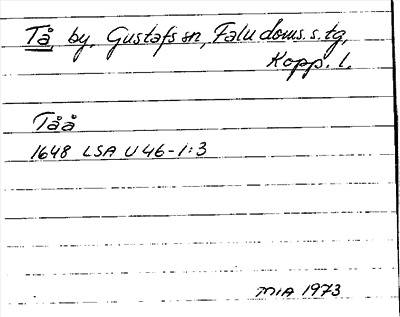 Tå, by, Gustafs sn, Falu doms. s. tg,
Kopp. l.
Tåå
1648 LSA U 46-1:3
MIA 1973